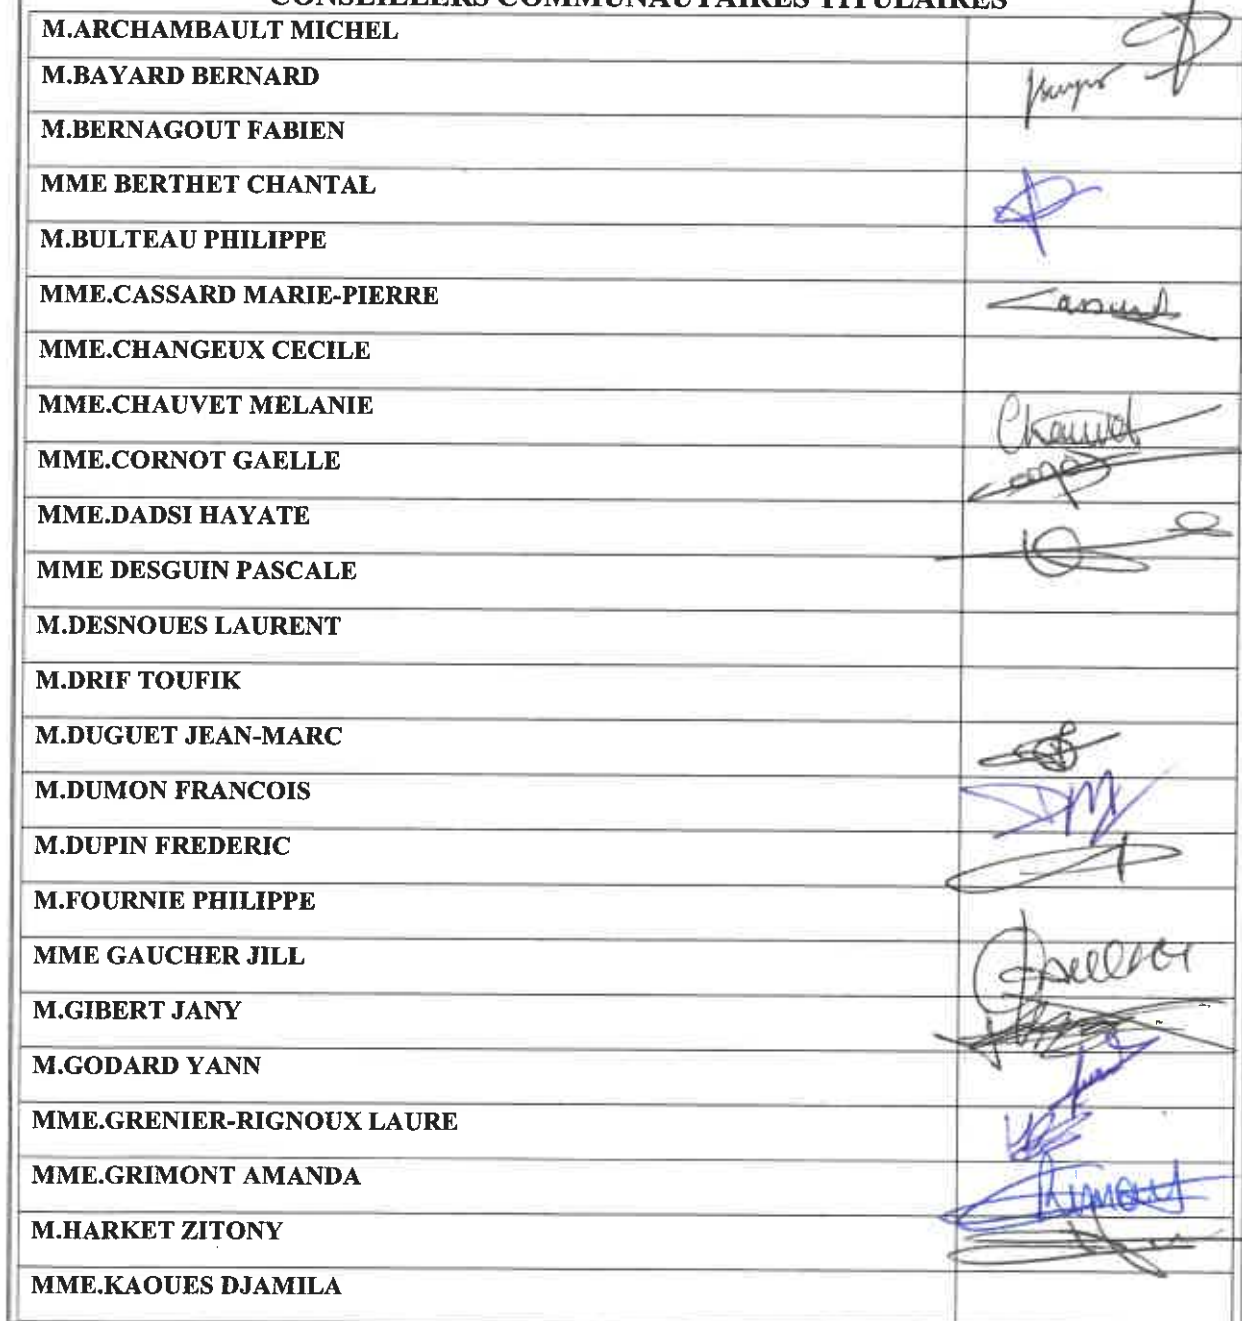 CONSEILLERS COMMUNAUTAIRES TITULAIRES
M.ARCHAMBAULT MICHEL
M.BAYARD BERNARD
M.BERNAGOUT FABIEN
MME BERTHET CHANTAL
M.BULTEAU PHILIPPE
MME.CASSARD MARIE-PIERRE
MME.CHANGEUX CECILE
MME.CHAUVET MELANIE
Chauvet
MME.CORNOT GAELLE
MME.DADSI HAYATE
MME DESGUIN PASCALE
M.DESNOUES LAURENT
M.DRIF TOUFIK
M.DUGUET JEAN-MARC
M.DUMON FRANCOIS
M.DUPIN FREDERIC
M.FOURNIE PHILIPPE
MME GAUCHER JILL
M.GIBERT JANY
M.GODARD YANN
MME.GRENIER-RIGNOUX LAURE
MME.GRIMONT AMANDA
M.HARKET ZITONY
MME.KAOUES DJAMILA